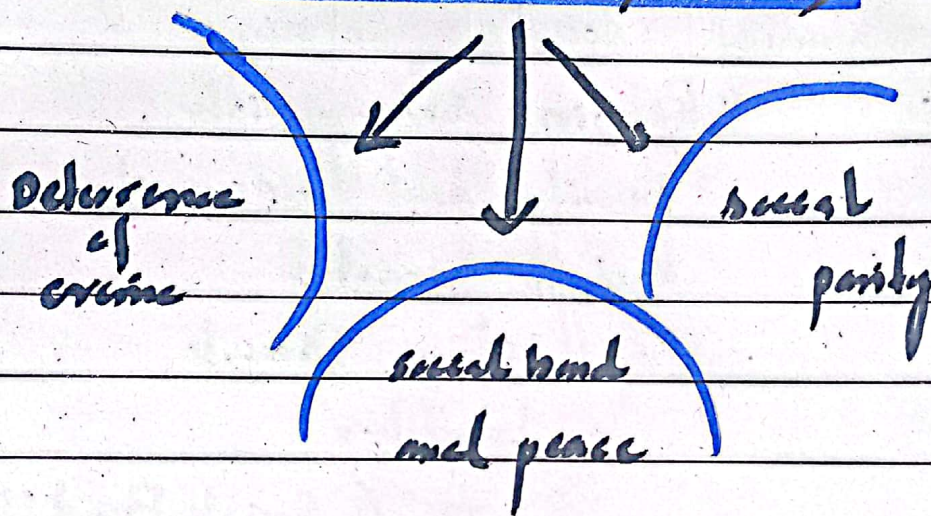 Deterrence
of
crime
social bond
and peace
social
parity